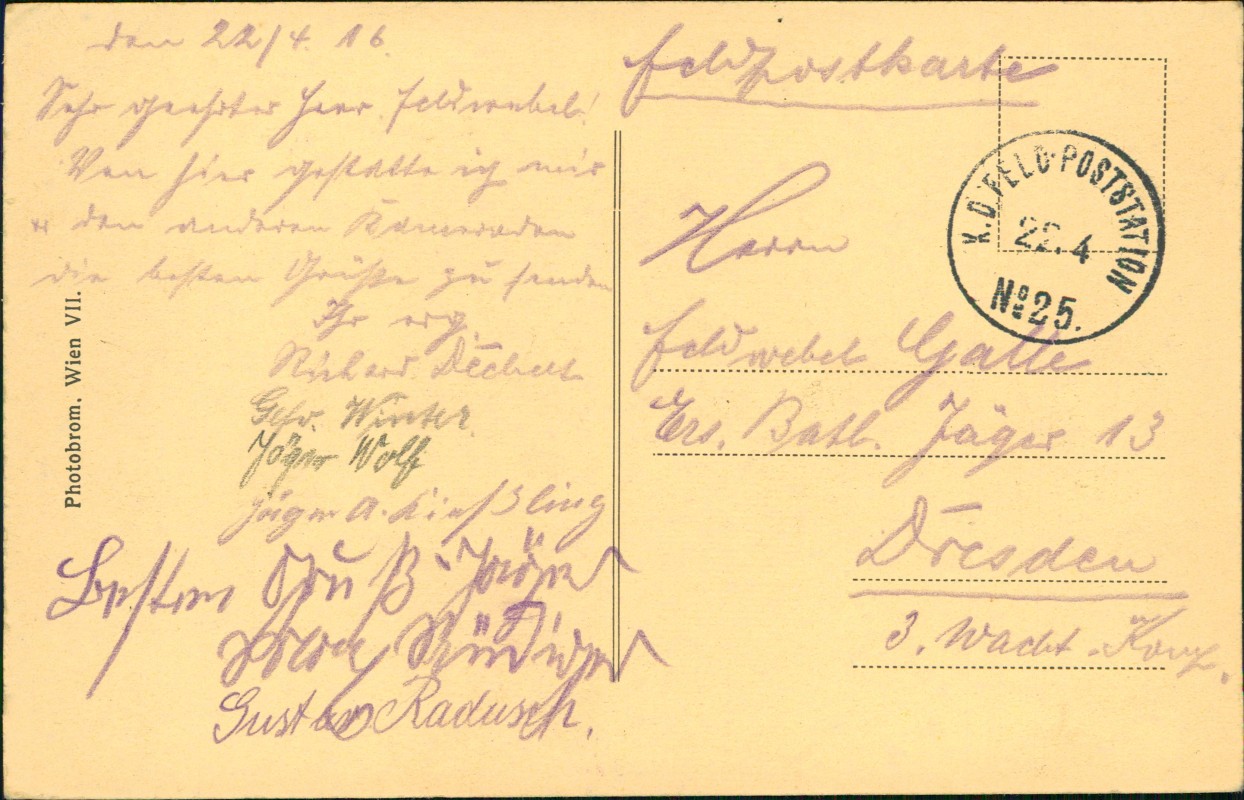 den 22/4. 16.
Sehr geehrter Herr Feldwebel!
Von hier gestatte ich mir
u. den anderen Kameraden
die besten Grüße zu senden
Ihr erg.
Richard
Gefr. Winter
Jäger Wolf
Jäger A. Kießling
Besten Gruß Jäger
Max Rüdiger
Gustav Radusch.
Photobrom, Wien VII.
Feldpostkarte
K.D. FELD-POSTSTATION
22.4
No 25.
Herrn
Feldwebel Galle
Ers. Batl. Jäger 13
Dresden
3. Wacht-Komp.